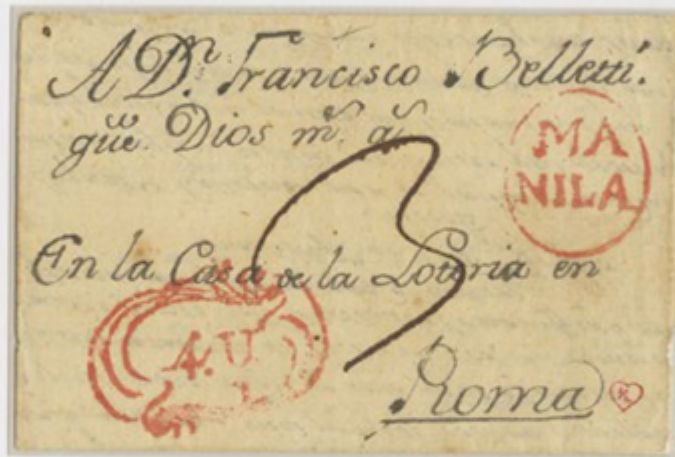 A Dn. Francisco Belletti.
gūe. Dios ms. as
MA
NILA
3
En la Casa de la Loteria en
4.U
Roma